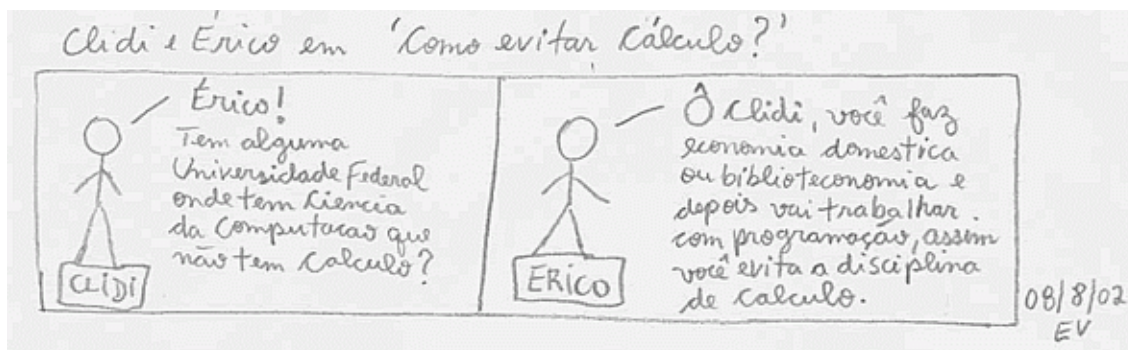 Clidi e Érico em 'Como evitar Cálculo?'
Érico!
Tem alguma
Universidade Federal
onde tem Ciencia
da Computacao que
não tem calculo?
CLIDI
Ô Clidi, você faz
economia domestica
ou biblioteconomia e
depois vai trabalhar
com programação, assim
você evita a disciplina
de calculo.
ERICO
08/8/02
EV